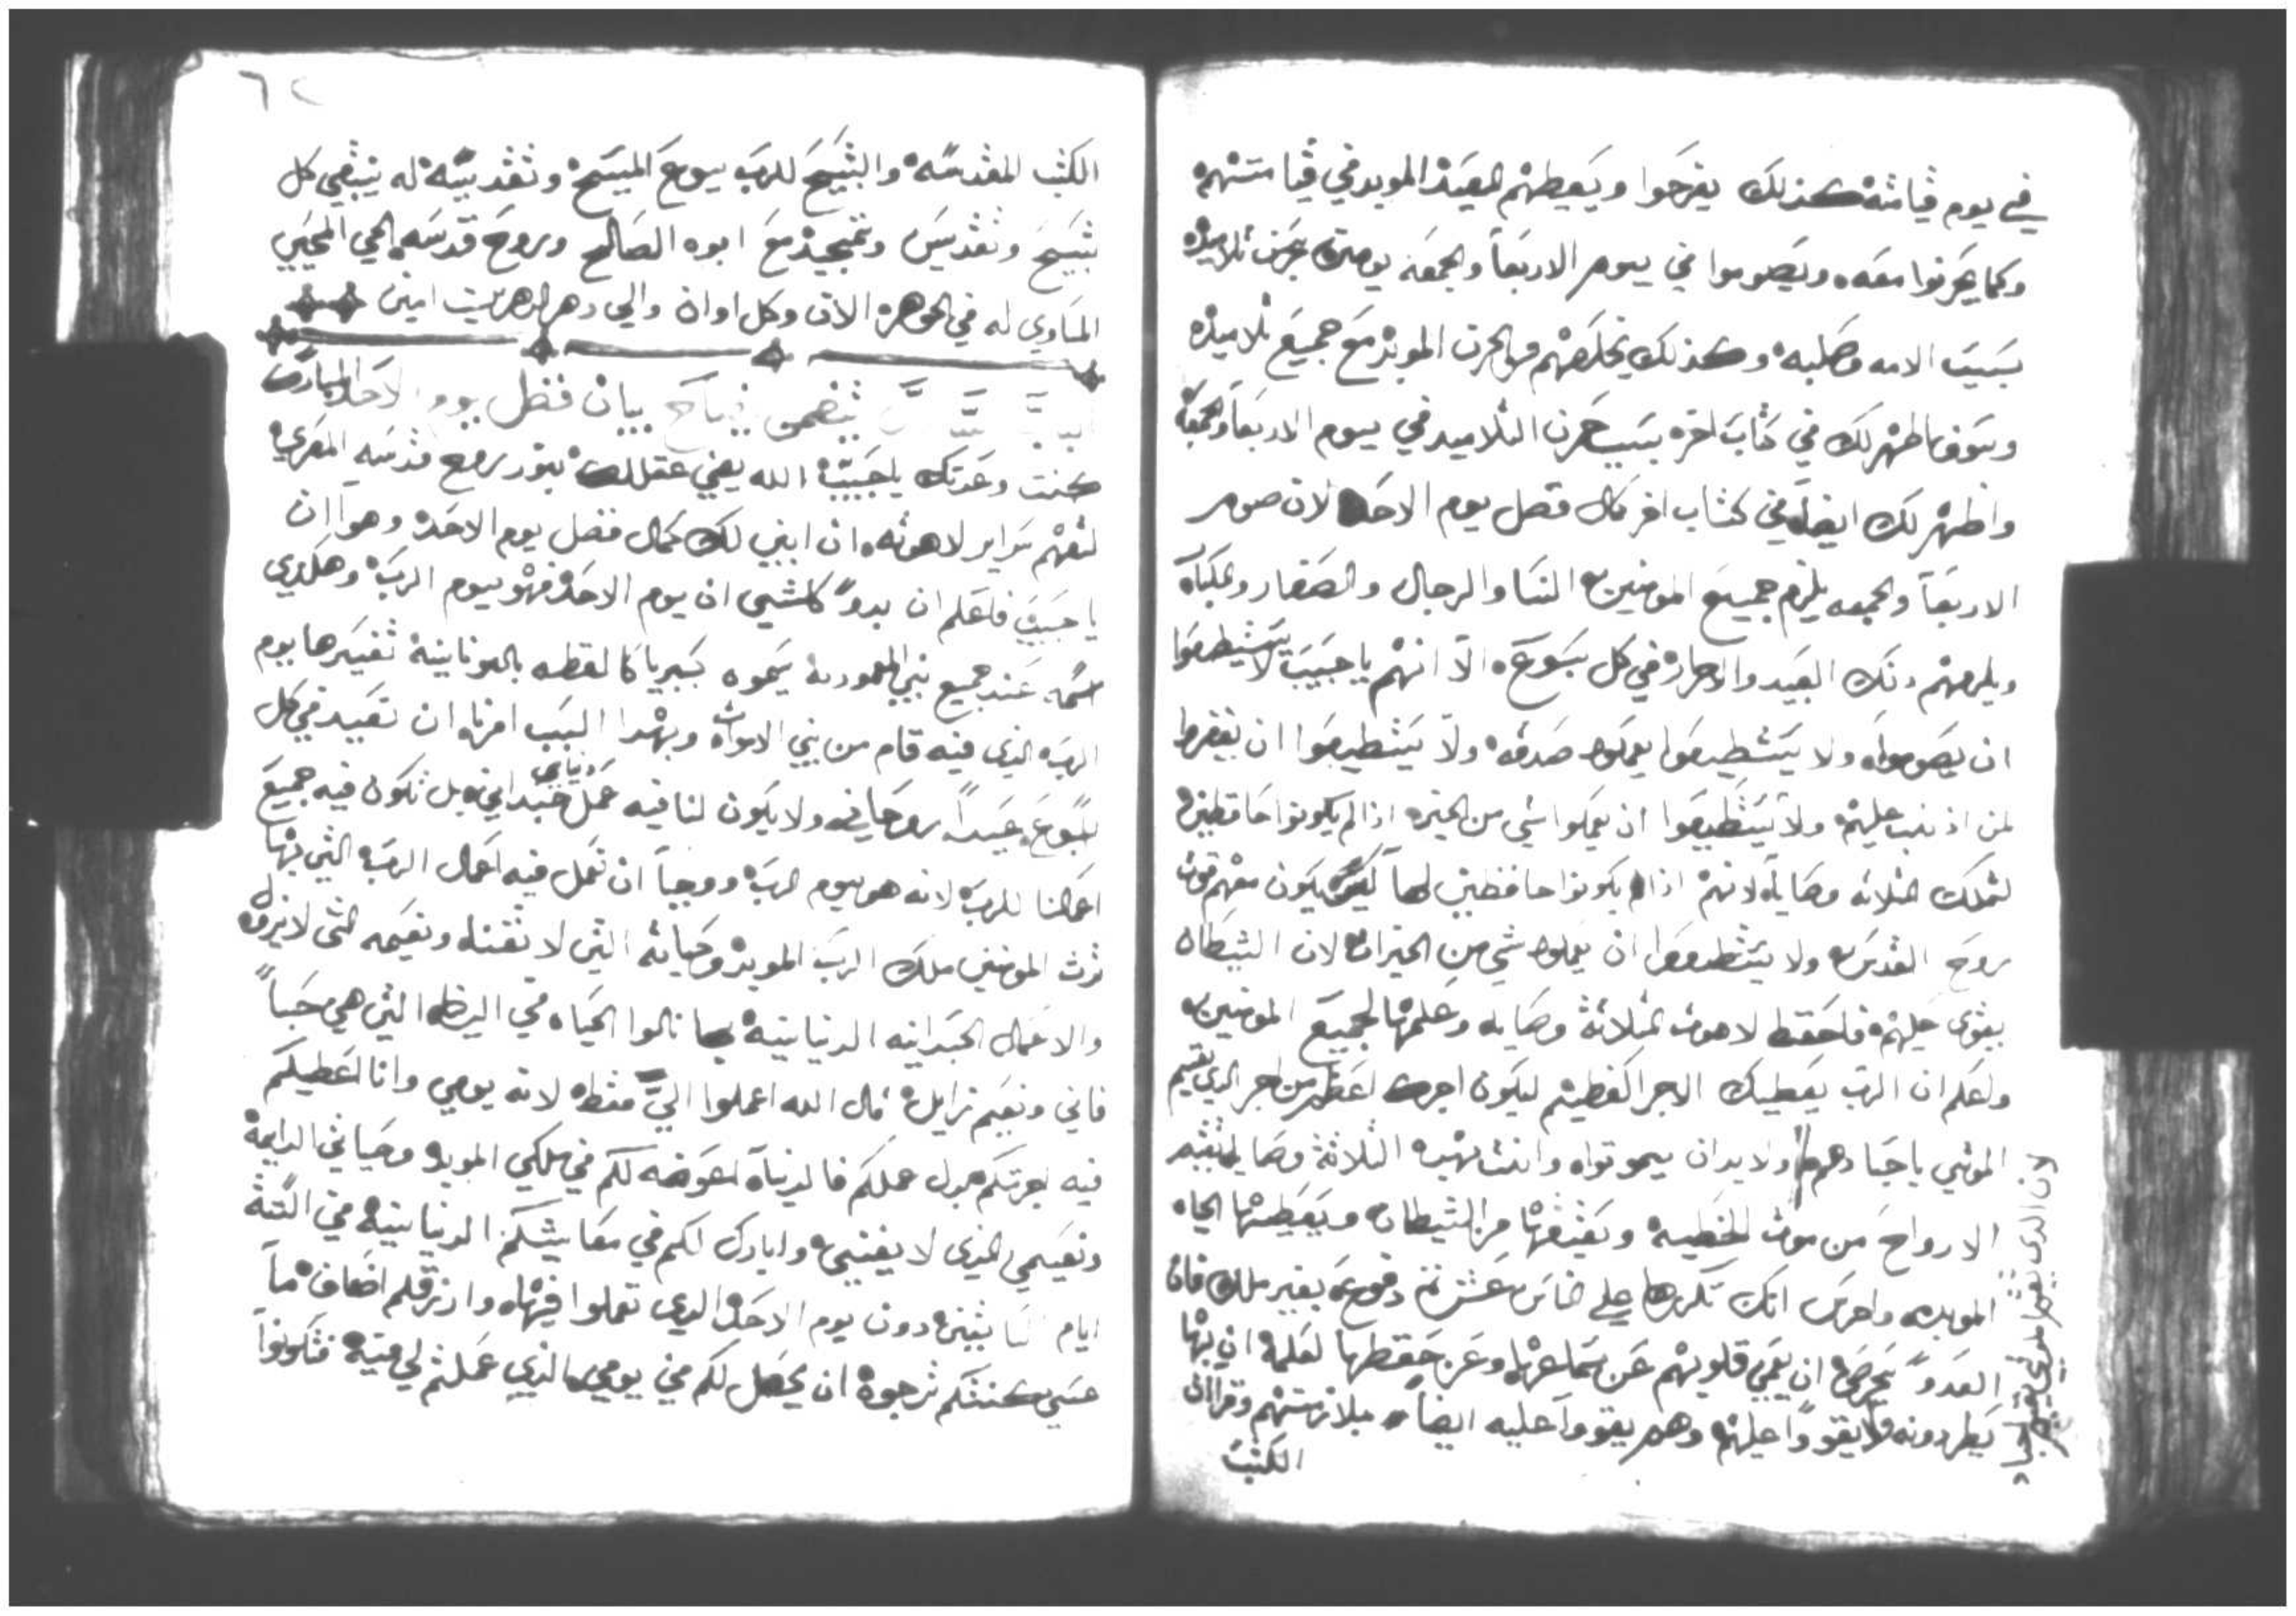 في يوم قيامته كذلك يفرحوا ويعطيهم العيد المويد في قيامتهم
وكما يحزنوا معه ويصوموا في يوم الاربعا والجمعه يوم حزن تلاميده
بسبب الامه وصلبه وكذلك يخلصهم من الحزن المويد مع جميع تلاميده
وسوف اظهر لك في كتاب اخر بسبب حزن التلاميد في يوم الاربعا والجمعة
واظهر لك ايضا في كتاب اخر كمال فضل يوم الاحد لان صوم
الاربعا والجمعه يلزم جميع المومنين النسا والرجال والصغار والكبار
ويلزمهم دلك العبيد والاحرار في كل اسبوع الا انهم يا حبيب لا يستطيعوا
ان يصوموا ولا يستطيعوا يعملوا صدقه ولا يستطيعوا ان يغفروا
لمن اذنب عليهم ولا يستطيعوا ان يعملوا شي من الخير اذا لم يكونوا حافظين
لتلك الثلاثه وصايا لانهم اذا لم يكونوا حافظين لها ليس يكون معهم قوت
روح القدس ولا يستطيعوا ان يعملوا شي من الخيرات لان الشيطان
يقوى عليهم فاحفظ لاهوت الثلاثة وصايا وعلمها لجميع المومنين
واعلم ان الرب يعطيك الاجر العظيم ليكون اجرك اعظم من اجر الدي يقيم
الموتي يا حبا دهم ولابد ان يموتوا وانت بهده الثلاثة وصايا تقيم
الارواح من موت الخطيه وتعتقها من الشيطان ويعطيها الحياه
الموبده واحرص انك تكرها علي الناس عشر دفوع بغير ملل فان
العدو يحرص ان يعمي قلوبهم عن سماعها وعن حفظها لعلمه ان بها
يطردونه ولا يقوا عليهم وهم يقووا عليه ايضا بملازمتهم وقراات
الكتب
لان الدي يقيم الموتي يقيم اجساد
٦٢
الكتب المقدسة والتسبيح للرب يسوع المسيح وتقديسه له ينبغي كل
تسبيح وتقديس وتمجيد مع ابوه الصالح وروح قدسه الحي المحيي
المساوي له في الجوهر الان وكل اوان والي دهر الداهرين امين
يتضمن بيان فضل يوم الاحد المبارك
كنت وعدتك يا حبيب الله يضي عقلك بنور روح قدسه المعزي
لتفهم سراير لاهوته ان ابين لك كمال فضل يوم الاحد وهو ان
يا حبيب فاعلم ان بدو كل شي ان يوم الاحد فهو يوم الرب وهكدي
اسمه عند جميع بني المعمودية يسموه كبرياكا لفظه باليونانية تفسيرها يوم
الرب الذي فيه قام من بين الاموات وبهدا السبب امرنا ان نعيد في كل
اسبوع عيداً روحاني ولا يكون لنا فيه عمل جسداني دنياني بل تكون فيه جميع
اعمالنا للرب لانه هو يوم الرب ووجب ان نعمل فيه اعمال الرب التي بها
ترت المومنين ملك الرب المويد وحياته التي لا تفنا ونعيمه التي لا يزول
والاعمال الجسدانيه الدنيانية بها نالوا الحياه في الارض التي هي حبا
فاني ونعيم زايل قال الله اعملوا الي فقط لانه يومي وانا اعطيكم
فيه اجرتكم بدل عملكم فالدنيا اعوضه لكم في ملكي الموبد وحياتي الدايمة
ونعيمي الذي لا يفنى وابارك لكم في معايشكم الدنيانية في الستة
ايام الباقية دون يوم الاحد الدي تعملوا فيها وارزقكم اضعاف ما
عسي كنتم ترجوه ان يحصل لكم في يومي الذي عملتم لي فيه فتكونوا